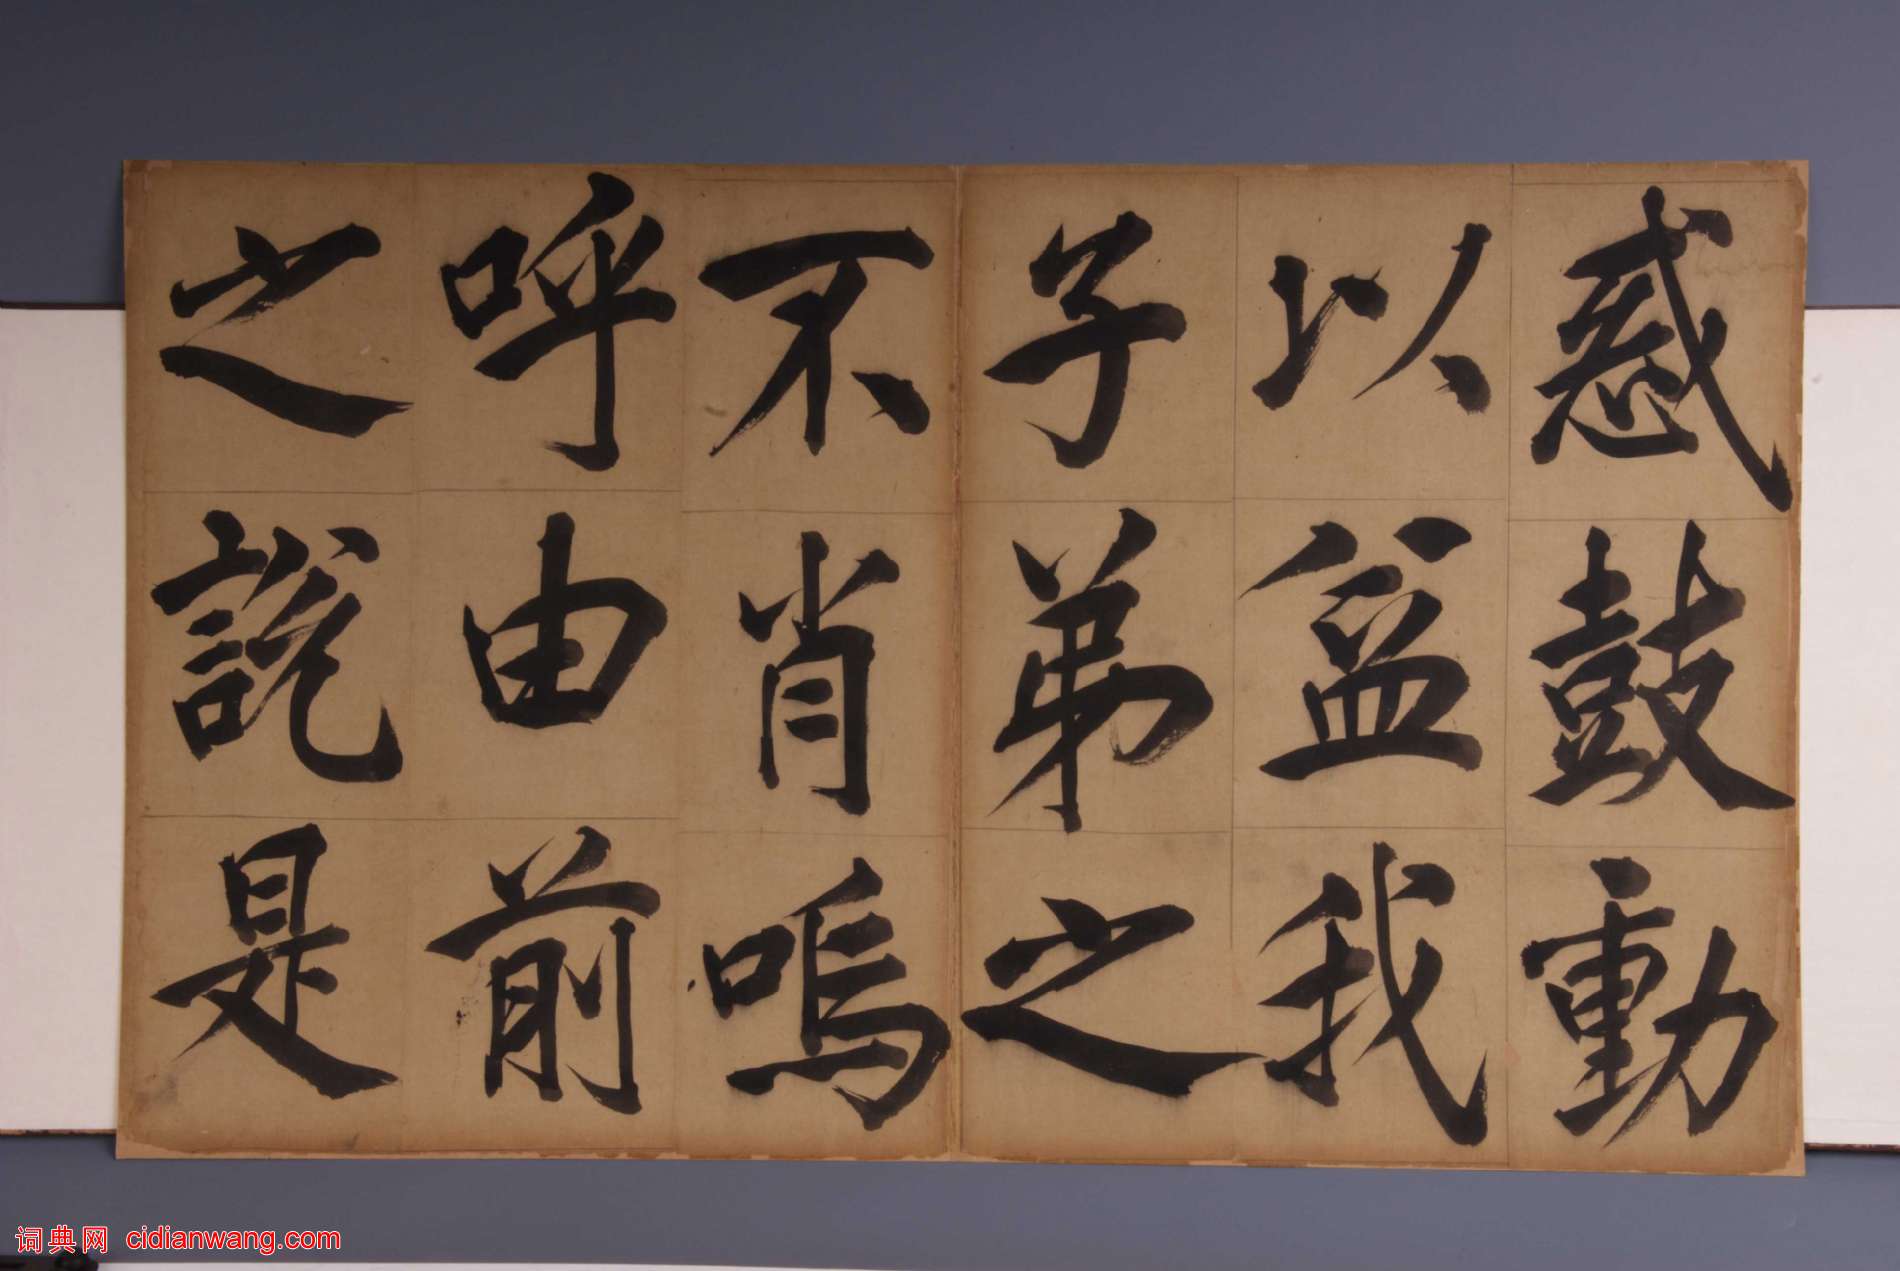 惑鼓動
以益我
子弟之
不肖嗚
呼由前
之說是
词典网 cidianwang.com